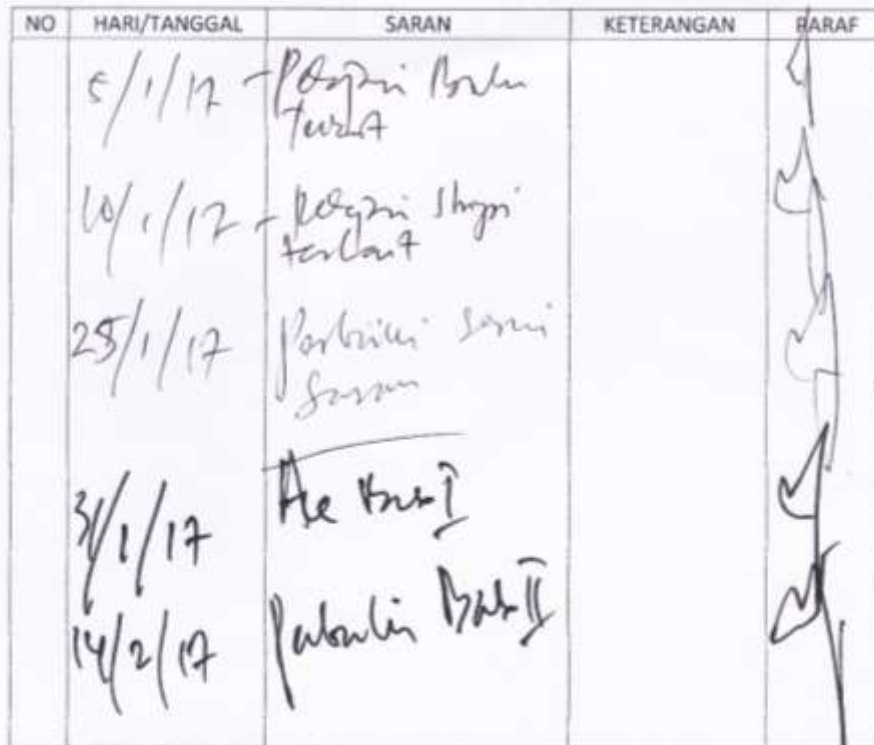 NO HARI/TANGGAL SARAN KETERANGAN PARAF
5/1/17 - Pelajari Buku
10/1/17 - Pelajari Skripsi
terkait
25/1/17 Perbaiki sesuai
saran
31/1/17 Acc Bab I
14/2/17 Perbaiki Bab II